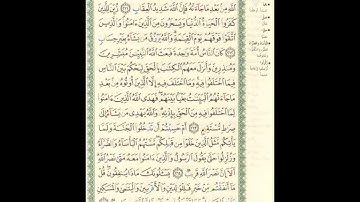 ٱللَّهِ مِنۢ بَعْدِ مَا جَآءَتْهُ فَإِنَّ ٱللَّهَ شَدِيدُ ٱلْعِقَابِ ٢١١ زُيِّنَ لِلَّذِينَ
كَفَرُوا۟ ٱلْحَيَوٰةُ ٱلدُّنْيَا وَيَسْخَرُونَ مِنَ ٱلَّذِينَ ءَامَنُوا۟ وَٱلَّذِينَ
ٱتَّقَوْا۟ فَوْقَهُمْ يَوْمَ ٱلْقِيَٰمَةِ وَٱللَّهُ يَرْزُقُ مَن يَشَآءُ بِغَيْرِ حِسَابٍ
٢١٢ كَانَ ٱلنَّاسُ أُمَّةً وَٰحِدَةً فَبَعَثَ ٱللَّهُ ٱلنَّبِيِّـۧنَ مُبَشِّرِينَ
وَمُنذِرِينَ وَأَنزَلَ مَعَهُمُ ٱلْكِتَٰبَ بِٱلْحَقِّ لِيَحْكُمَ بَيْنَ ٱلنَّاسِ
فِيمَا ٱخْتَلَفُوا۟ فِيهِ وَمَا ٱخْتَلَفَ فِيهِ إِلَّا ٱلَّذِينَ أُوتُوهُ مِنۢ بَعْدِ
مَا جَآءَتْهُمُ ٱلْبَيِّنَٰتُ بَغْيًۢا بَيْنَهُمْ فَهَدَى ٱللَّهُ ٱلَّذِينَ ءَامَنُوا۟
لِمَا ٱخْتَلَفُوا۟ فِيهِ مِنَ ٱلْحَقِّ بِإِذْنِهِۦ وَٱللَّهُ يَهْدِى مَن يَشَآءُ إِلَىٰ
صِرَٰطٍ مُّسْتَقِيمٍ ٢١٣ أَمْ حَسِبْتُمْ أَن تَدْخُلُوا۟ ٱلْجَنَّةَ وَلَمَّا
يَأْتِكُم مَّثَلُ ٱلَّذِينَ خَلَوْا۟ مِن قَبْلِكُم مَّسَّتْهُمُ ٱلْبَأْسَآءُ وَٱلضَّرَّآءُ
وَزُلْزِلُوا۟ حَتَّىٰ يَقُولَ ٱلرَّسُولُ وَٱلَّذِينَ ءَامَنُوا۟ مَعَهُۥ مَتَىٰ نَصْرُ ٱللَّهِ
أَلَآ إِنَّ نَصْرَ ٱللَّهِ قَرِيبٌ ٢١٤ يَسْـَٔلُونَكَ مَاذَا يُنفِقُونَ قُلْ
مَآ أَنفَقْتُم مِّنْ خَيْرٍ فَلِلْوَٰلِدَيْنِ وَٱلْأَقْرَبِينَ وَٱلْيَتَٰمَىٰ وَٱلْمَسَٰكِينِ